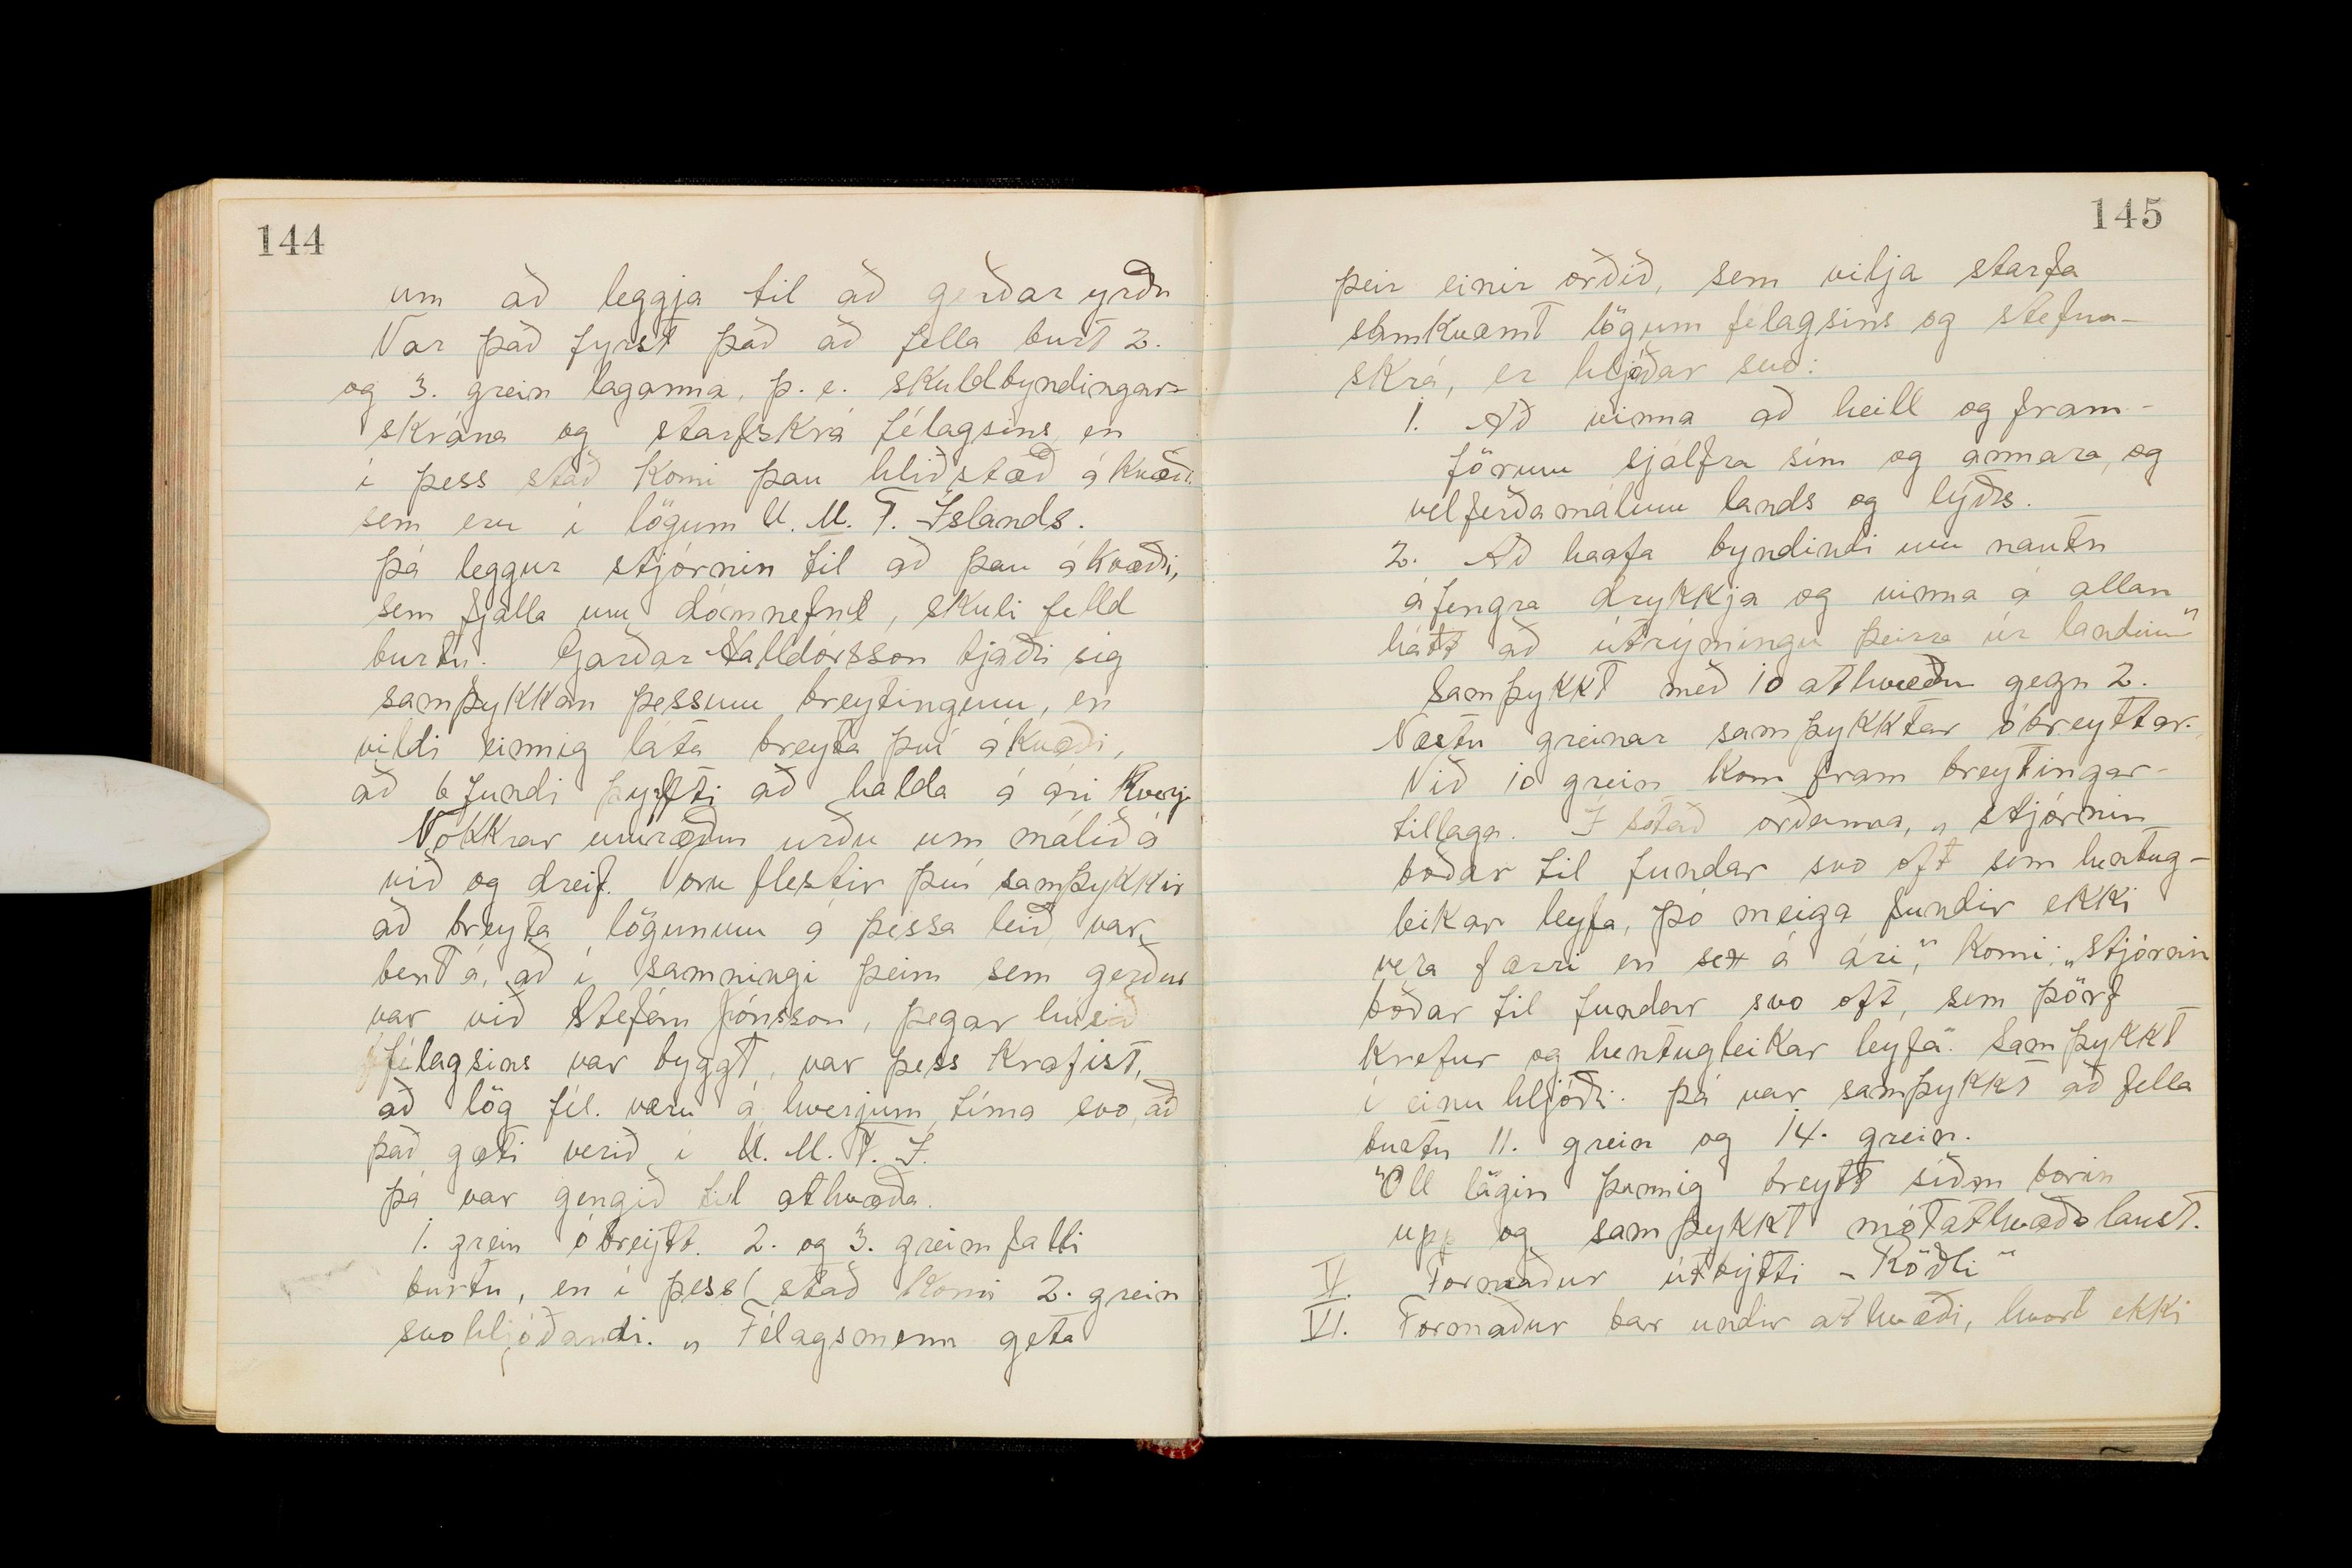 144
um að leggja til að gerðar yrðu
Var það fyrst það að fella burt 2.
og 3. grein laganna, þ. e. skuldbyndingar-
skrána og starfskrá félagsins, en
í þess stað komi þau hliðstæð ákvæði
sem eru í lögum U. M. F. Íslands.
Þá leggur stjórnin til að þau ákvæði,
sem fjalla um dómnefnd, skuli felld
burtu. Garðar Halldórsson tjáði sig
samþykkan þessum breytingum, en
vildi einnig láta breyta því ákvæði,
að 6 fundi þyrfti að halda á ári hverj.
Nokkrar umræður urðu um málið á
við og dreif. Voru flestir því samþykkir
að breyta lögunum á þessa leið, var
bent á, að í samningi þeim sem gerður
var við Stefán Jónsson, þegar húsið
félagsins var byggt, var þess krafist,
að lög fél. væru á hverjum tíma svo, að
það gæti verið í U. M. F. Í.
Þá var gengið til athvæða.
1. grein óbreytt. 2. og 3. grein falli
burtu, en í þess stað komi 2. grein
svohljóðandi. „Félagsmenn geta
145
þeir einir orðið, sem vilja starfa
samkvæmt lögum félagsins og stefnu-
skrá, er hljóðar svo:
1. Að vinna að heill og fram-
förum sjálfra sín og annara, og
velferðamálum lands og lýðs.
2. Að haafa byndindi um nautn
áfengra drykkja og vinna á allan
hátt að útrýmingu þeirra úr landinu"
Samþykkt með 10 athvæðum gegn 2.
Næstu greinar samþykktar óbreyttar.
Við 10 grein kom fram breytingar-
tillaga. Í stað orðanna, „stjórnin
boðar til fundar svo oft sem hentug-
leikar leyfa, þó meiga fundir ekki
vera færri en sex á ári," komi: „Stjórnin
boðar til fundar svo oft, sem þörf
krefur og hentugleikar leyfa". Samþykkt
í einu hljóði. Þá var samþykkt að fella
burtu 11. grein og 14. grein.
Öll lögin þannig breytt síðan borin
upp og samþykkt mótathvæðalaust.
V. Formaður útbýtti „Röðli"
VI. Formaður bar undir athvæði, hvort ekki